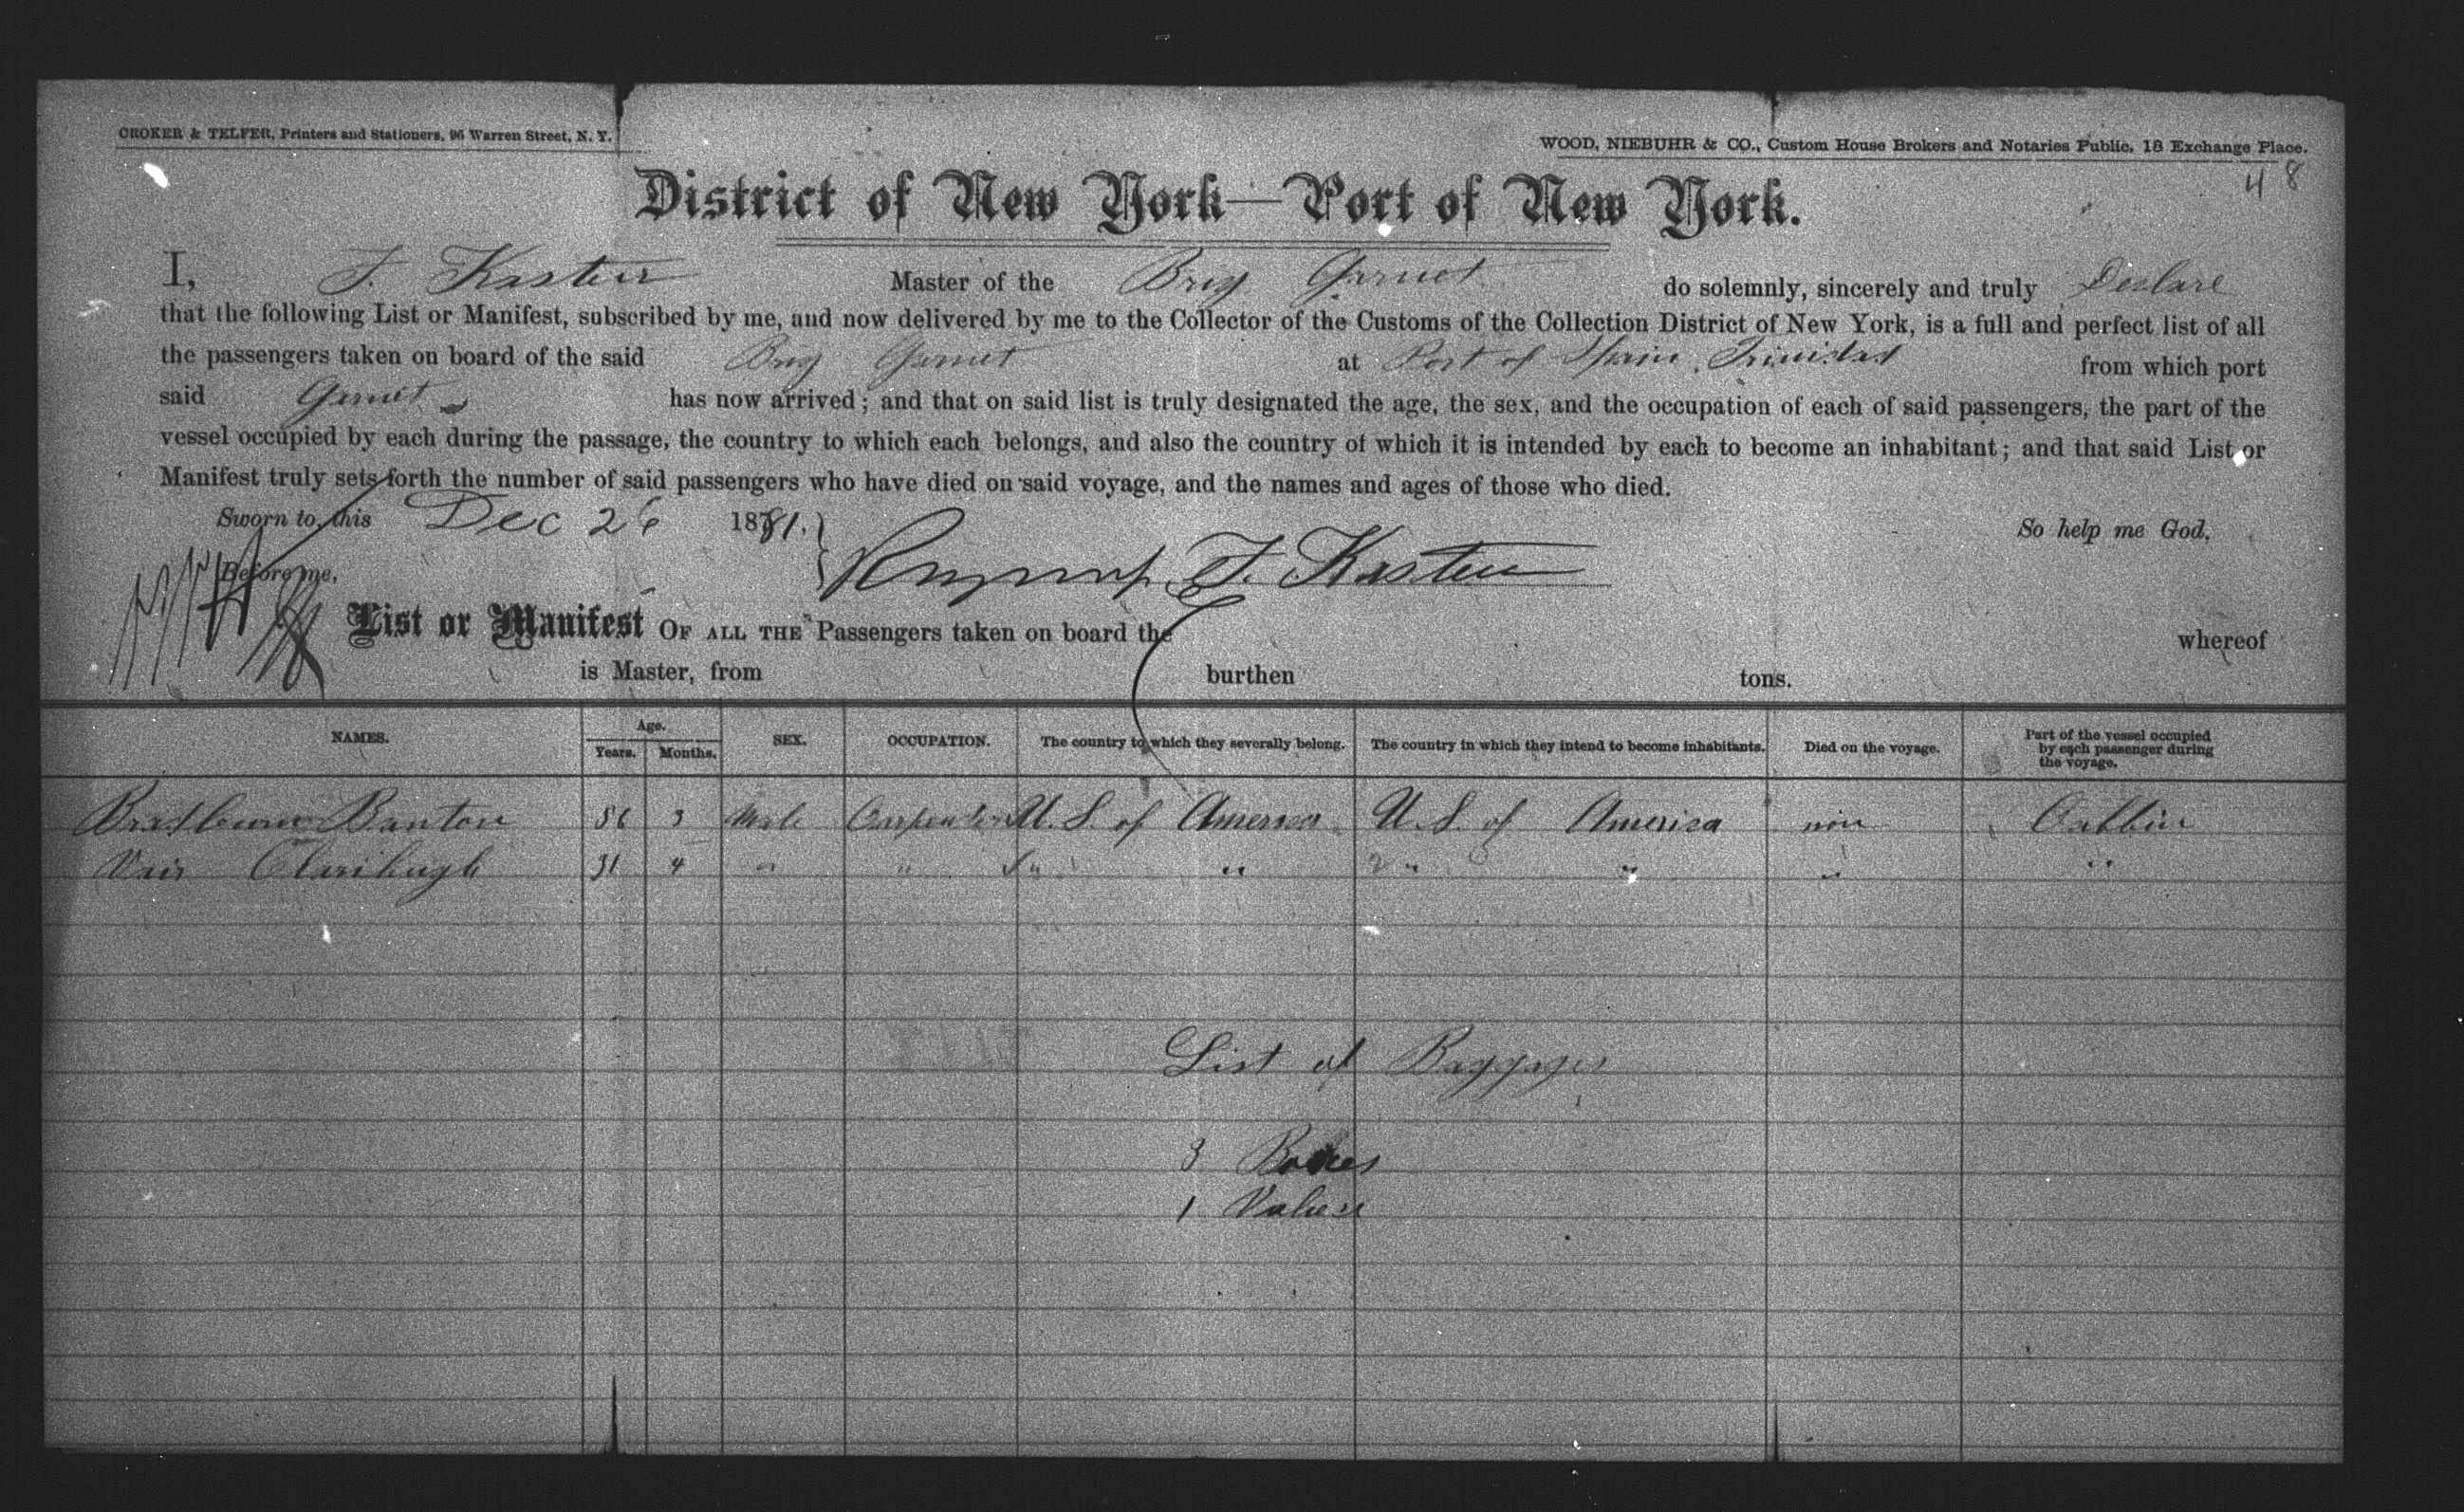 CROKER & TELFER, Printers and Stationers, 96 Warren Street, N. Y.
WOOD, NIEBUHR & CO., Custom House Brokers and Notaries Public, 18 Exchange Place.
48
District of New York—Port of New York.
I, F. Kasten Master of the Brig Garnet do solemnly, sincerely and truly Declare
that the following List or Manifest, subscribed by me, and now delivered by me to the Collector of the Customs of the Collection District of New York, is a full and perfect list of all
the passengers taken on board of the said Brig Garnet at Port of Spain, Trinidad from which port
said Garnet has now arrived; and that on said list is truly designated the age, the sex, and the occupation of each of said passengers, the part of the
vessel occupied by each during the passage, the country to which each belongs, and also the country of which it is intended by each to become an inhabitant; and that said List or
Manifest truly sets forth the number of said passengers who have died on said voyage, and the names and ages of those who died.
Sworn to, this Dec 26 1881. So help me God.
F. Kasten
Before me,
List or Manifest OF ALL THE Passengers taken on board the whereof
is Master, from burthen tons.
NAMES. Age. Years. Months. SEX. OCCUPATION. The country to which they severally belong. The country in which they intend to become inhabitants. Died on the voyage. Part of the vessel occupied by each passenger during the voyage.
Banton 3 Male Carpenter U. S. of America U. S. of America non Cabbin
31 4 " " " " " " " "
List of Baggages
3 Boxes
1 Valise